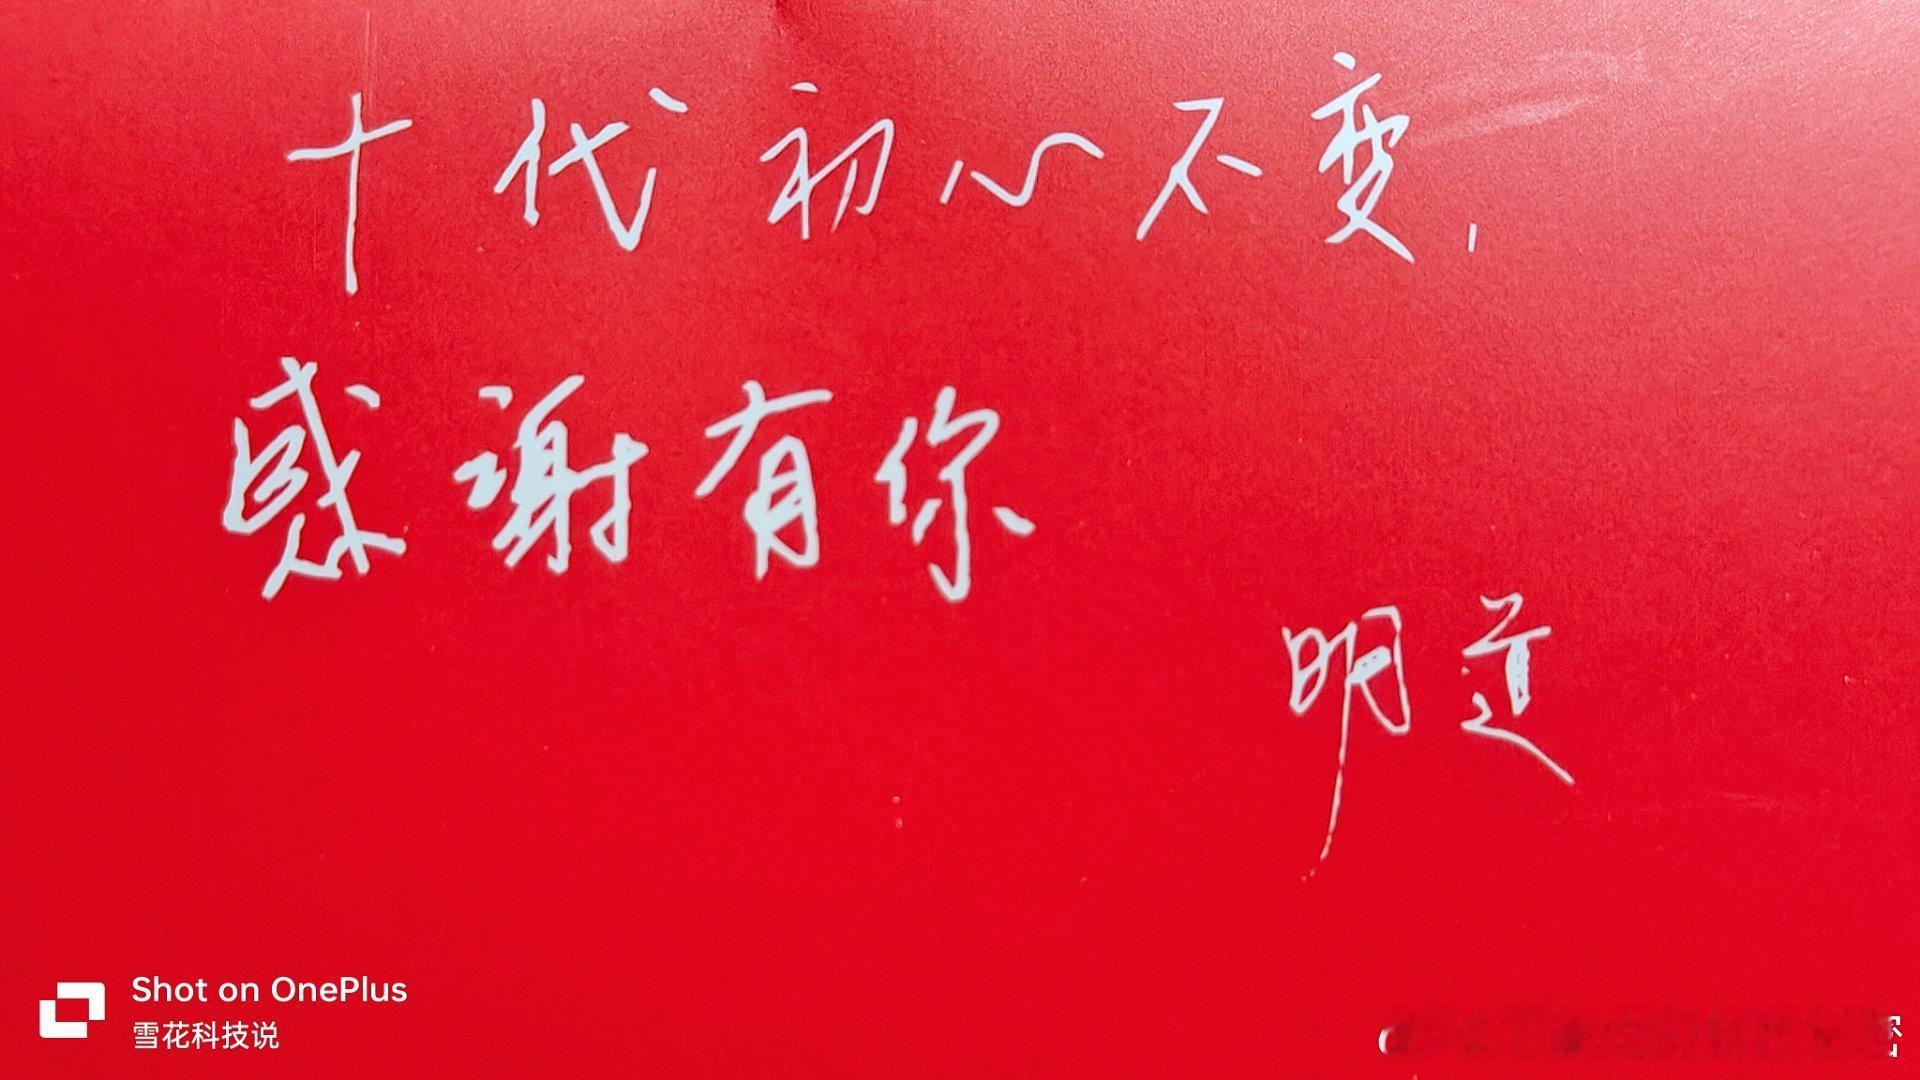 十代初心不变，
感谢有你
明道
Shot on OnePlus
雪花科技说